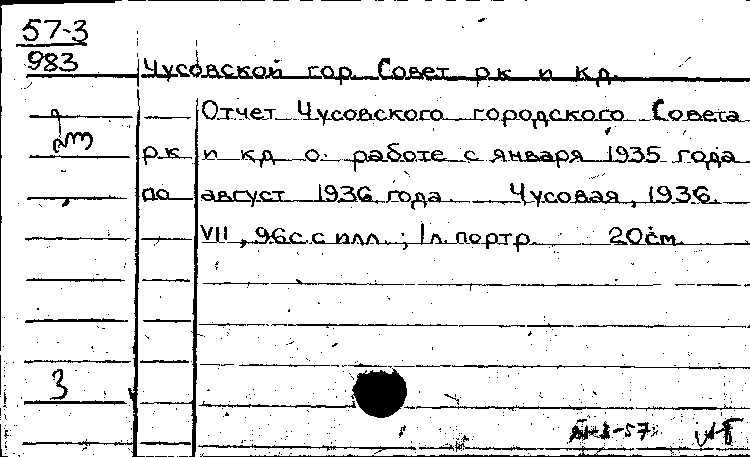 57-3
983
Чусовской гор. Совет р.к и к.д.
Отчет Чусовского городского Совета
р.к и к.д о работе с января 1935 года
по август 1936 года. Чусовая, 1936.
VII, 96с. с илл.; 1л. портр. 20см.
3